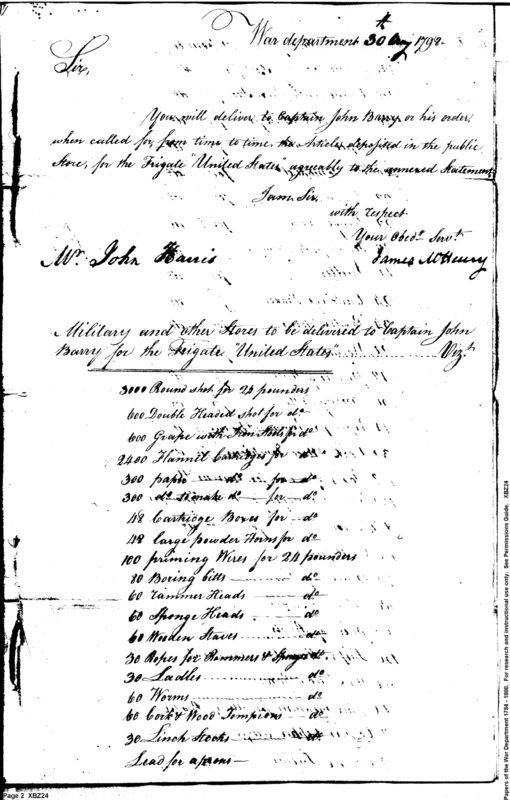 War department 30th 1798.
Sir,
You will deliver to Captain John Barry or his order,
when called for, from time to time the Articles deposited in the public
Store, for the Frigate "United States" agreeably to the annexed Statement
I am Sir,
with respect
Your Obedt. Servt.
James McHenry
Mr. John Harris
Military and other Stores to be delivered to Captain John
Barry for the Frigate "United States" Vizt.
3000 Round shot for 24 pounders
600 Double Headed shot for do
600 Grape with Iron for do
2400 Flannel Cartridges for do
300 paper do for do
300 do to make do for do
48 Cartridge Boxes for do
48 large powder Horns for do
100 priming Wires for 24 pounders
80 Boring bitts do
60 Rammer Heads do
60 Sponge Heads do
60 Wooden Staves do
30 Ropes for Rammers & Sponges do
30 Ladles do
60 Worms do
60 Cork & Wood Tompions do
30 Linch Stocks do
Lead for aprons
Page 2 XBZ24
Papers of the War Department 1784 - 1800. For research and instructional use only. See Permissions Guide. XBZ24